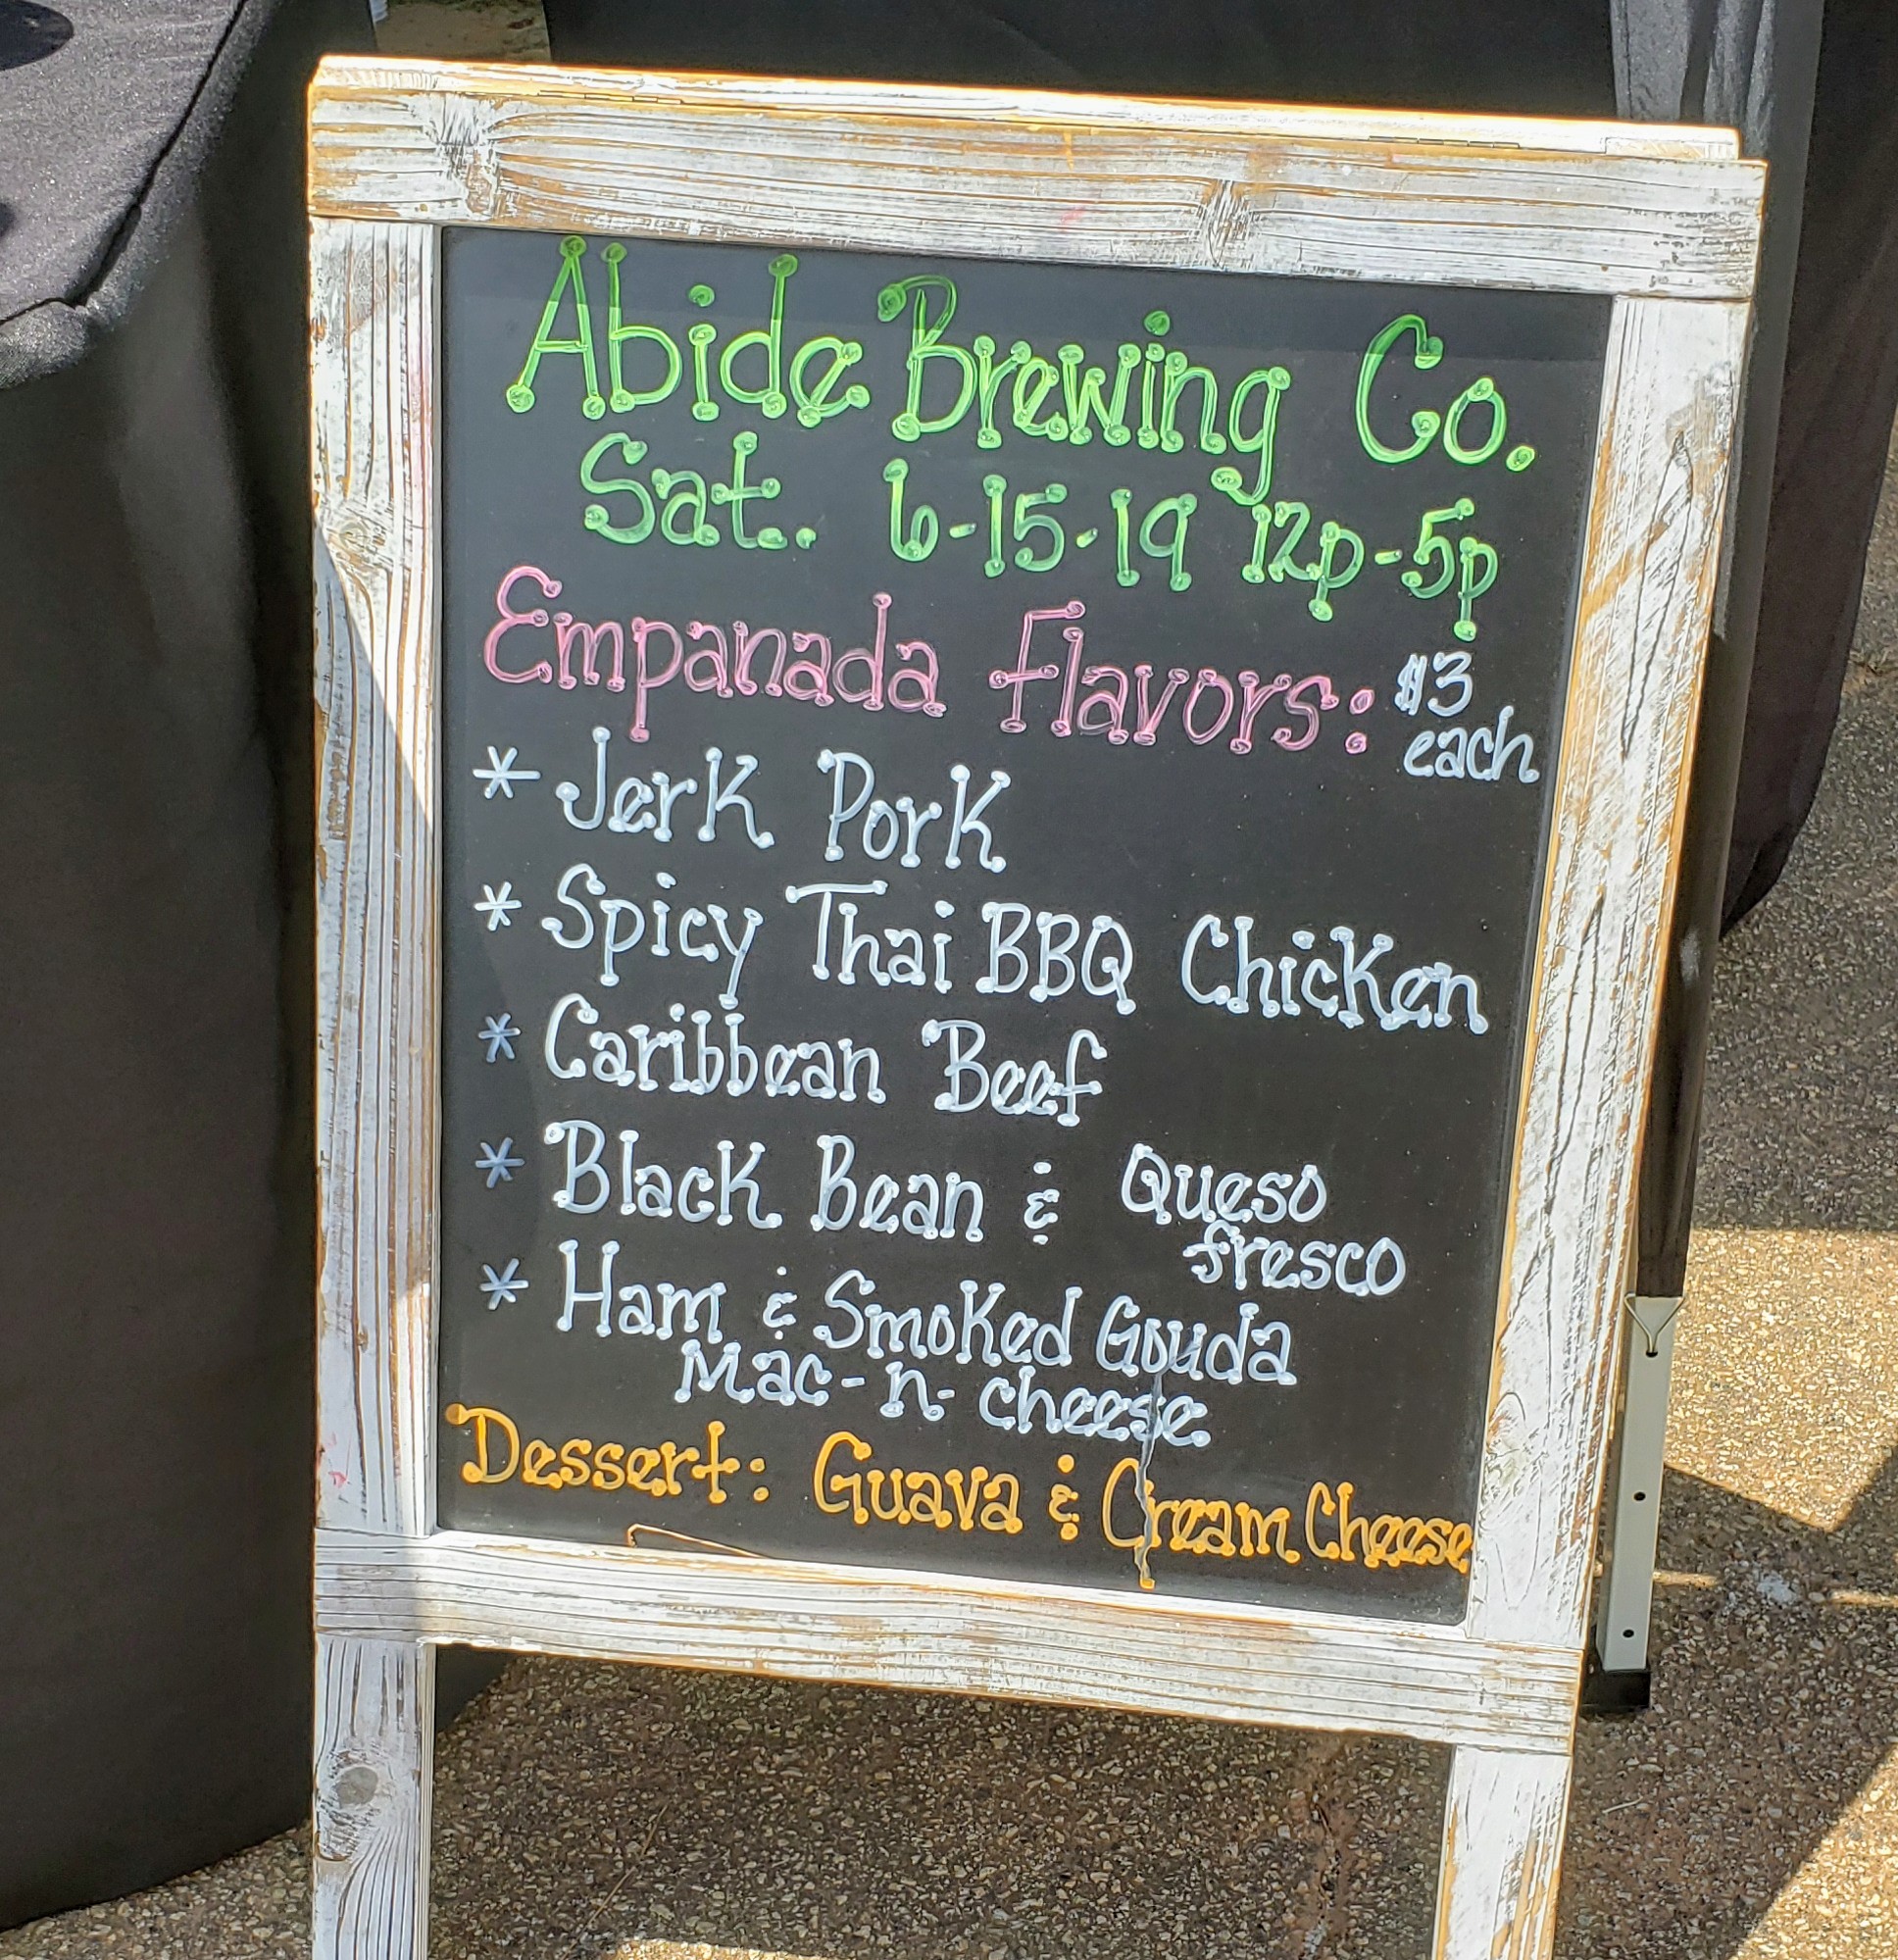 Abide Brewing Co.
Sat. 6-15-19 12p-5p
Empanada Flavors: $3
each
* Jerk Pork
* Spicy Thai BBQ Chicken
* Caribbean Beef
* Black Bean & Queso
fresco
* Ham & Smoked Gouda
Mac-n-cheese
Dessert: Guava & Cream Cheese